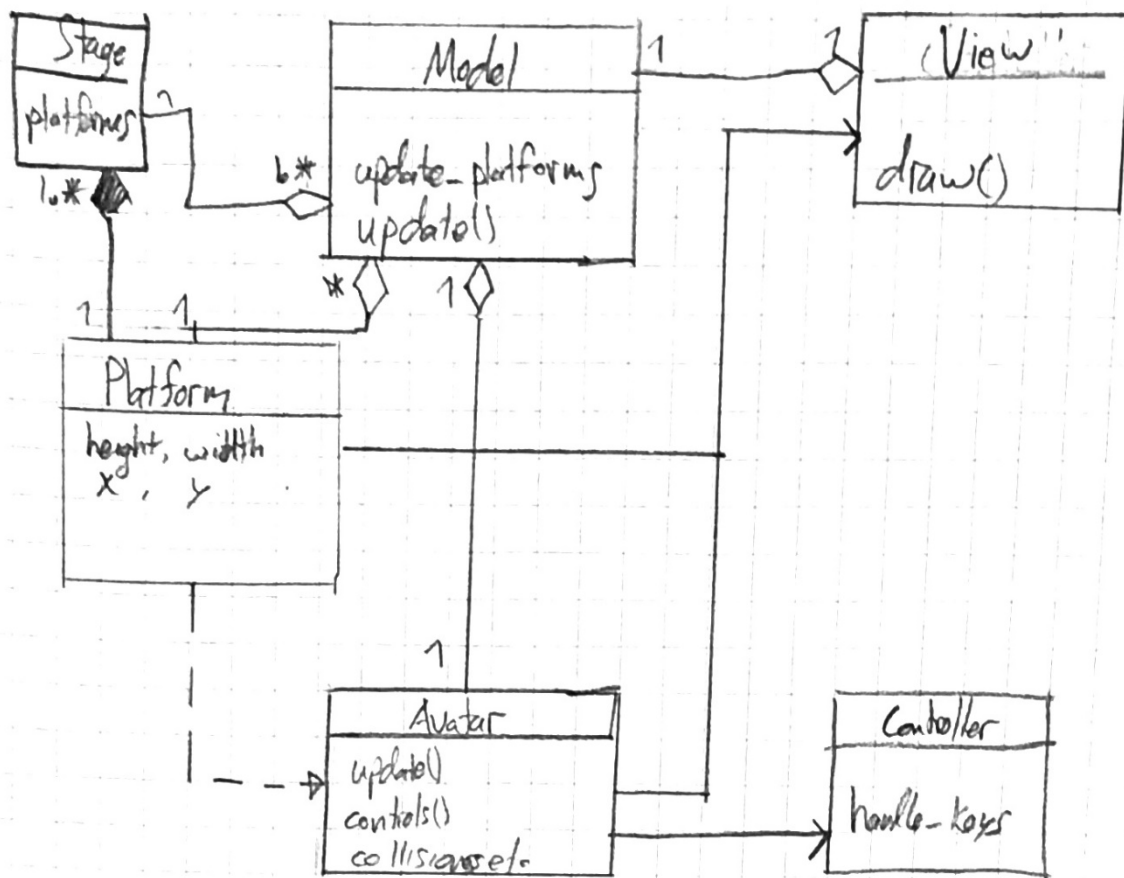 Stage
platforms
1
1..*
Model
update_platforms
update()
1
1
View
draw()
*
1
1
1
Platform
height, width
x , y
1
Avatar
update()
controls()
collisions etc.
Controller
handle_keys